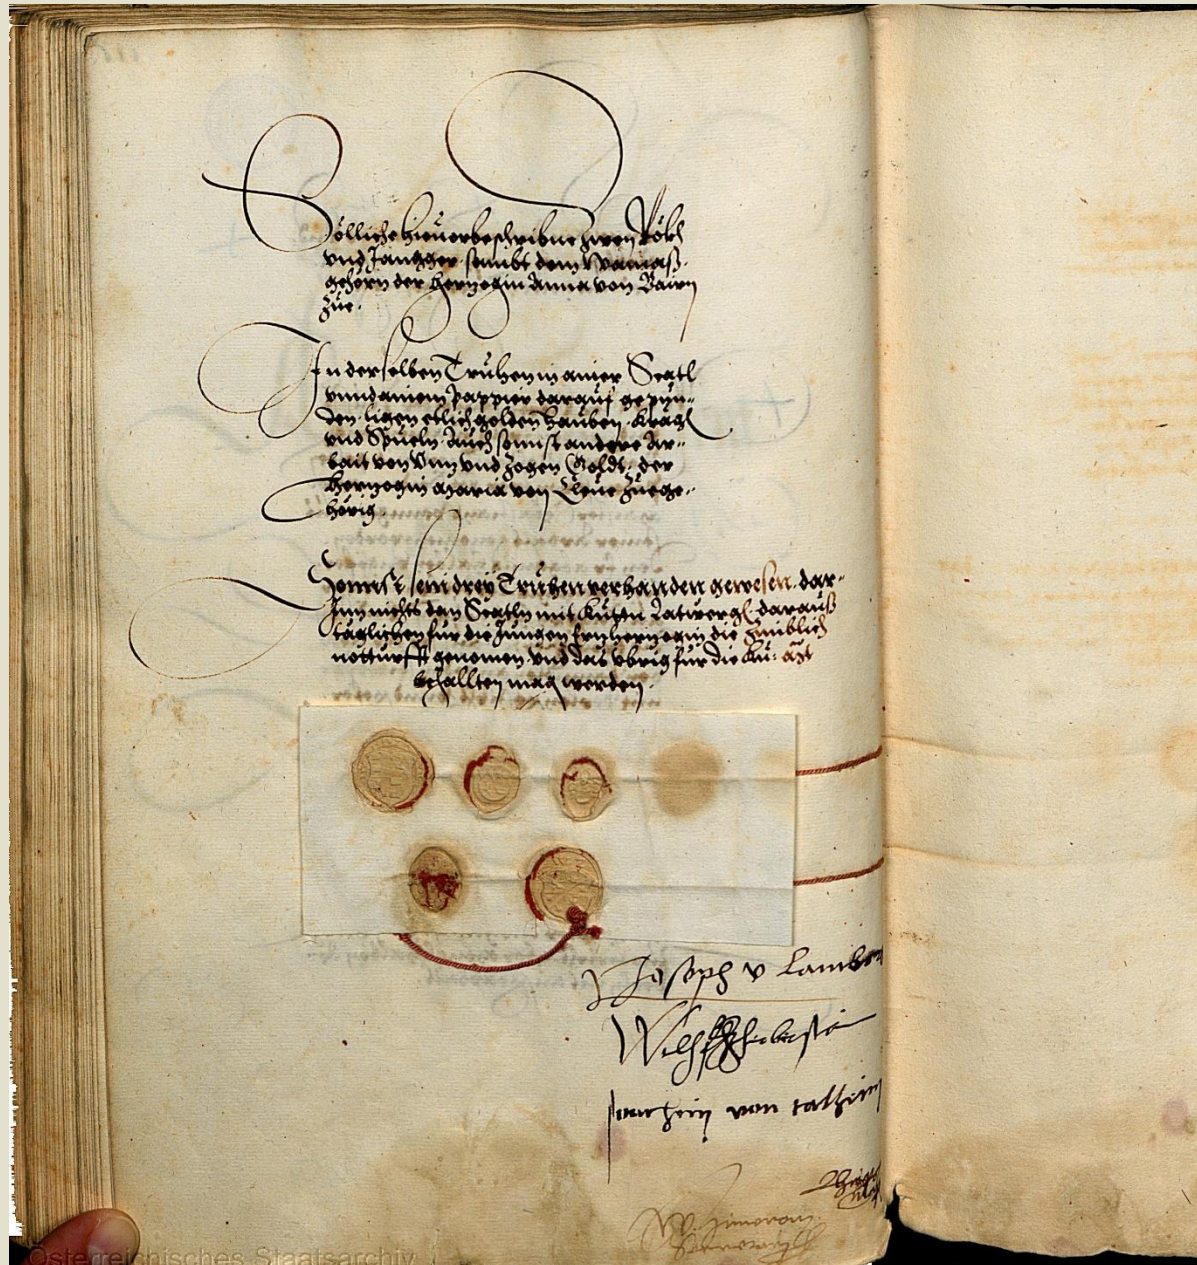 Sölliche hieuorbeschribne zwen Röckh
vnd Jangger sambt dem Wamaß
gehörn der Herzogin Anna von Bairn
zue.
In der selben Truhen in ainer Scatl
vnnd ainem Pappier darauf gepün-
den. ligen etlich golden hauben. Krägl
vnd Spueln. Auch sonnst andere Ar-
bait von vnd zogen Goldt. der
Herzogin Maria von Cleue zuege-
hörig.
Sonnst sein drey Truhen verhanden gewesen. dar-
Inn nichts dan Scatln mit Kuttn Latwergl. darauß
täglichen für die Jungen Ertzherzogin die
notturfft genomen. vnd das vbrig für die Kü:
behallten mag werden.
Joseph v Lamberg
von
Österreichisches Staatsarchiv